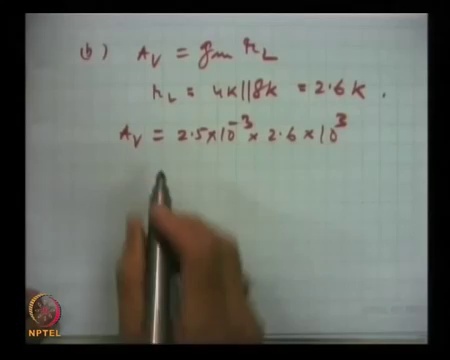 (b) Av = gm rL
rL = 4K||8K = 2.6 K.
Av = 2.5×10⁻³ × 2.6 × 10³
NPTEL